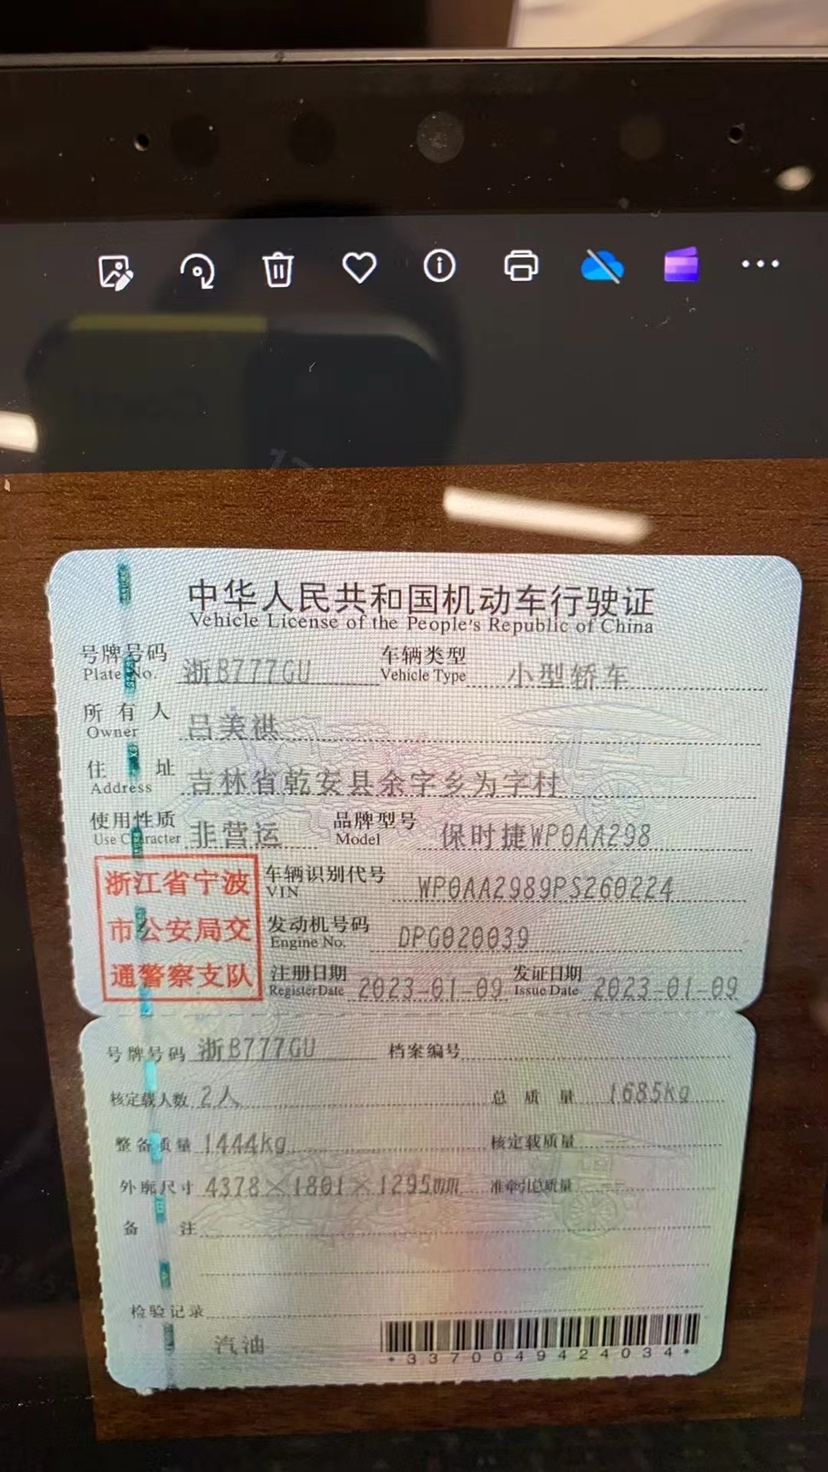 中华人民共和国机动车行驶证
Vehicle License of the People's Republic of China
号牌号码 浙B777GU 车辆类型 小型轿车
Plate No. Vehicle Type
所有人 吕美祺
Owner
住址 吉林省乾安县余字乡为字村
Address
使用性质 非营运 品牌型号 保时捷WP0AA298
Use Character Model
浙江省宁波
市公安局交
通警察支队
车辆识别代号 WP0AA2989PS260224
VIN
发动机号码 DPG020039
Engine No.
注册日期 2023-01-09 发证日期 2023-01-09
Register Date Issue Date
号牌号码 浙B777GU 档案编号
核定载人数 2人 总质量 1685kg
整备质量 1444kg 核定载质量 --
外廓尺寸 4378×1801×1295mm 准牵引总质量 --
备注
检验记录
汽油
*3370049424034*